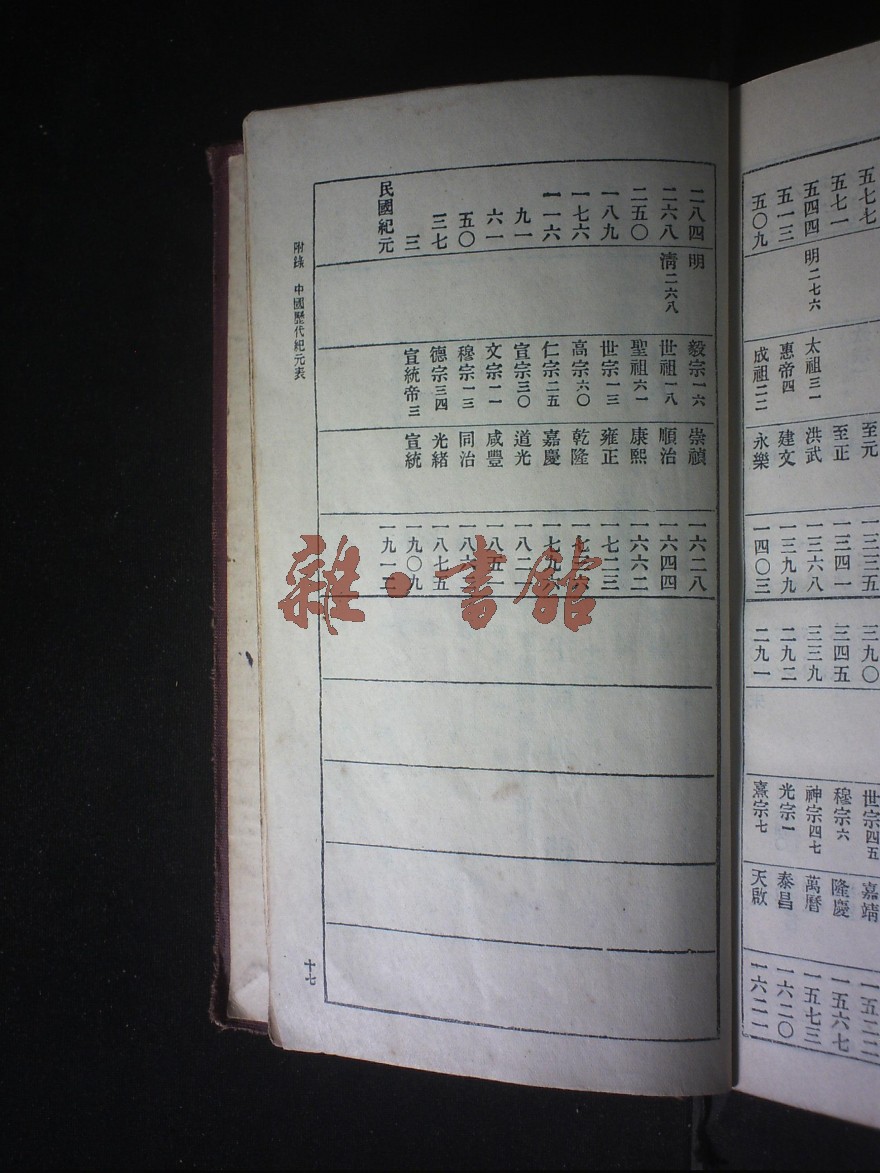 五七七 至元 一三三五
五七一 至正 一三四一
五四四 明二七六 太祖三一 洪武 一三六八
五一三 惠帝四 建文 一三九九
五〇九 成祖二二 永樂 一四〇三
三九〇 世宗四五 嘉靖 一五二二
三四五 穆宗六 隆慶 一五六七
三三九 神宗四七 萬曆 一五七三
二九二 光宗一 泰昌 一六二〇
二九一 熹宗七 天啟 一六二一
二八四 明 毅宗一六 崇禎 一六二八
二六八 淸二六八 世祖一八 順治 一六四四
二五〇 聖祖六一 康熙 一六六二
一八九 世宗一三 雍正 一七二三
一七六 高宗六〇 乾隆 一七三六
一一六 仁宗二五 嘉慶 一七九六
九一 宣宗三〇 道光 一八二一
六一 文宗一一 咸豐 一八五一
五〇 穆宗一三 同治 一八六
三七 德宗三四 光緒 一八七五
三 宣統帝三 宣統 一九〇九
民國紀元 一九一二
附錄 中國歷代紀元表
十七
雜·書館